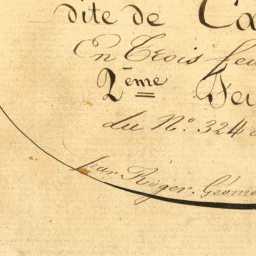 dite de Ca
En Trois feu
2ème Feu
du N.° 324 a
par Roger, Géomè